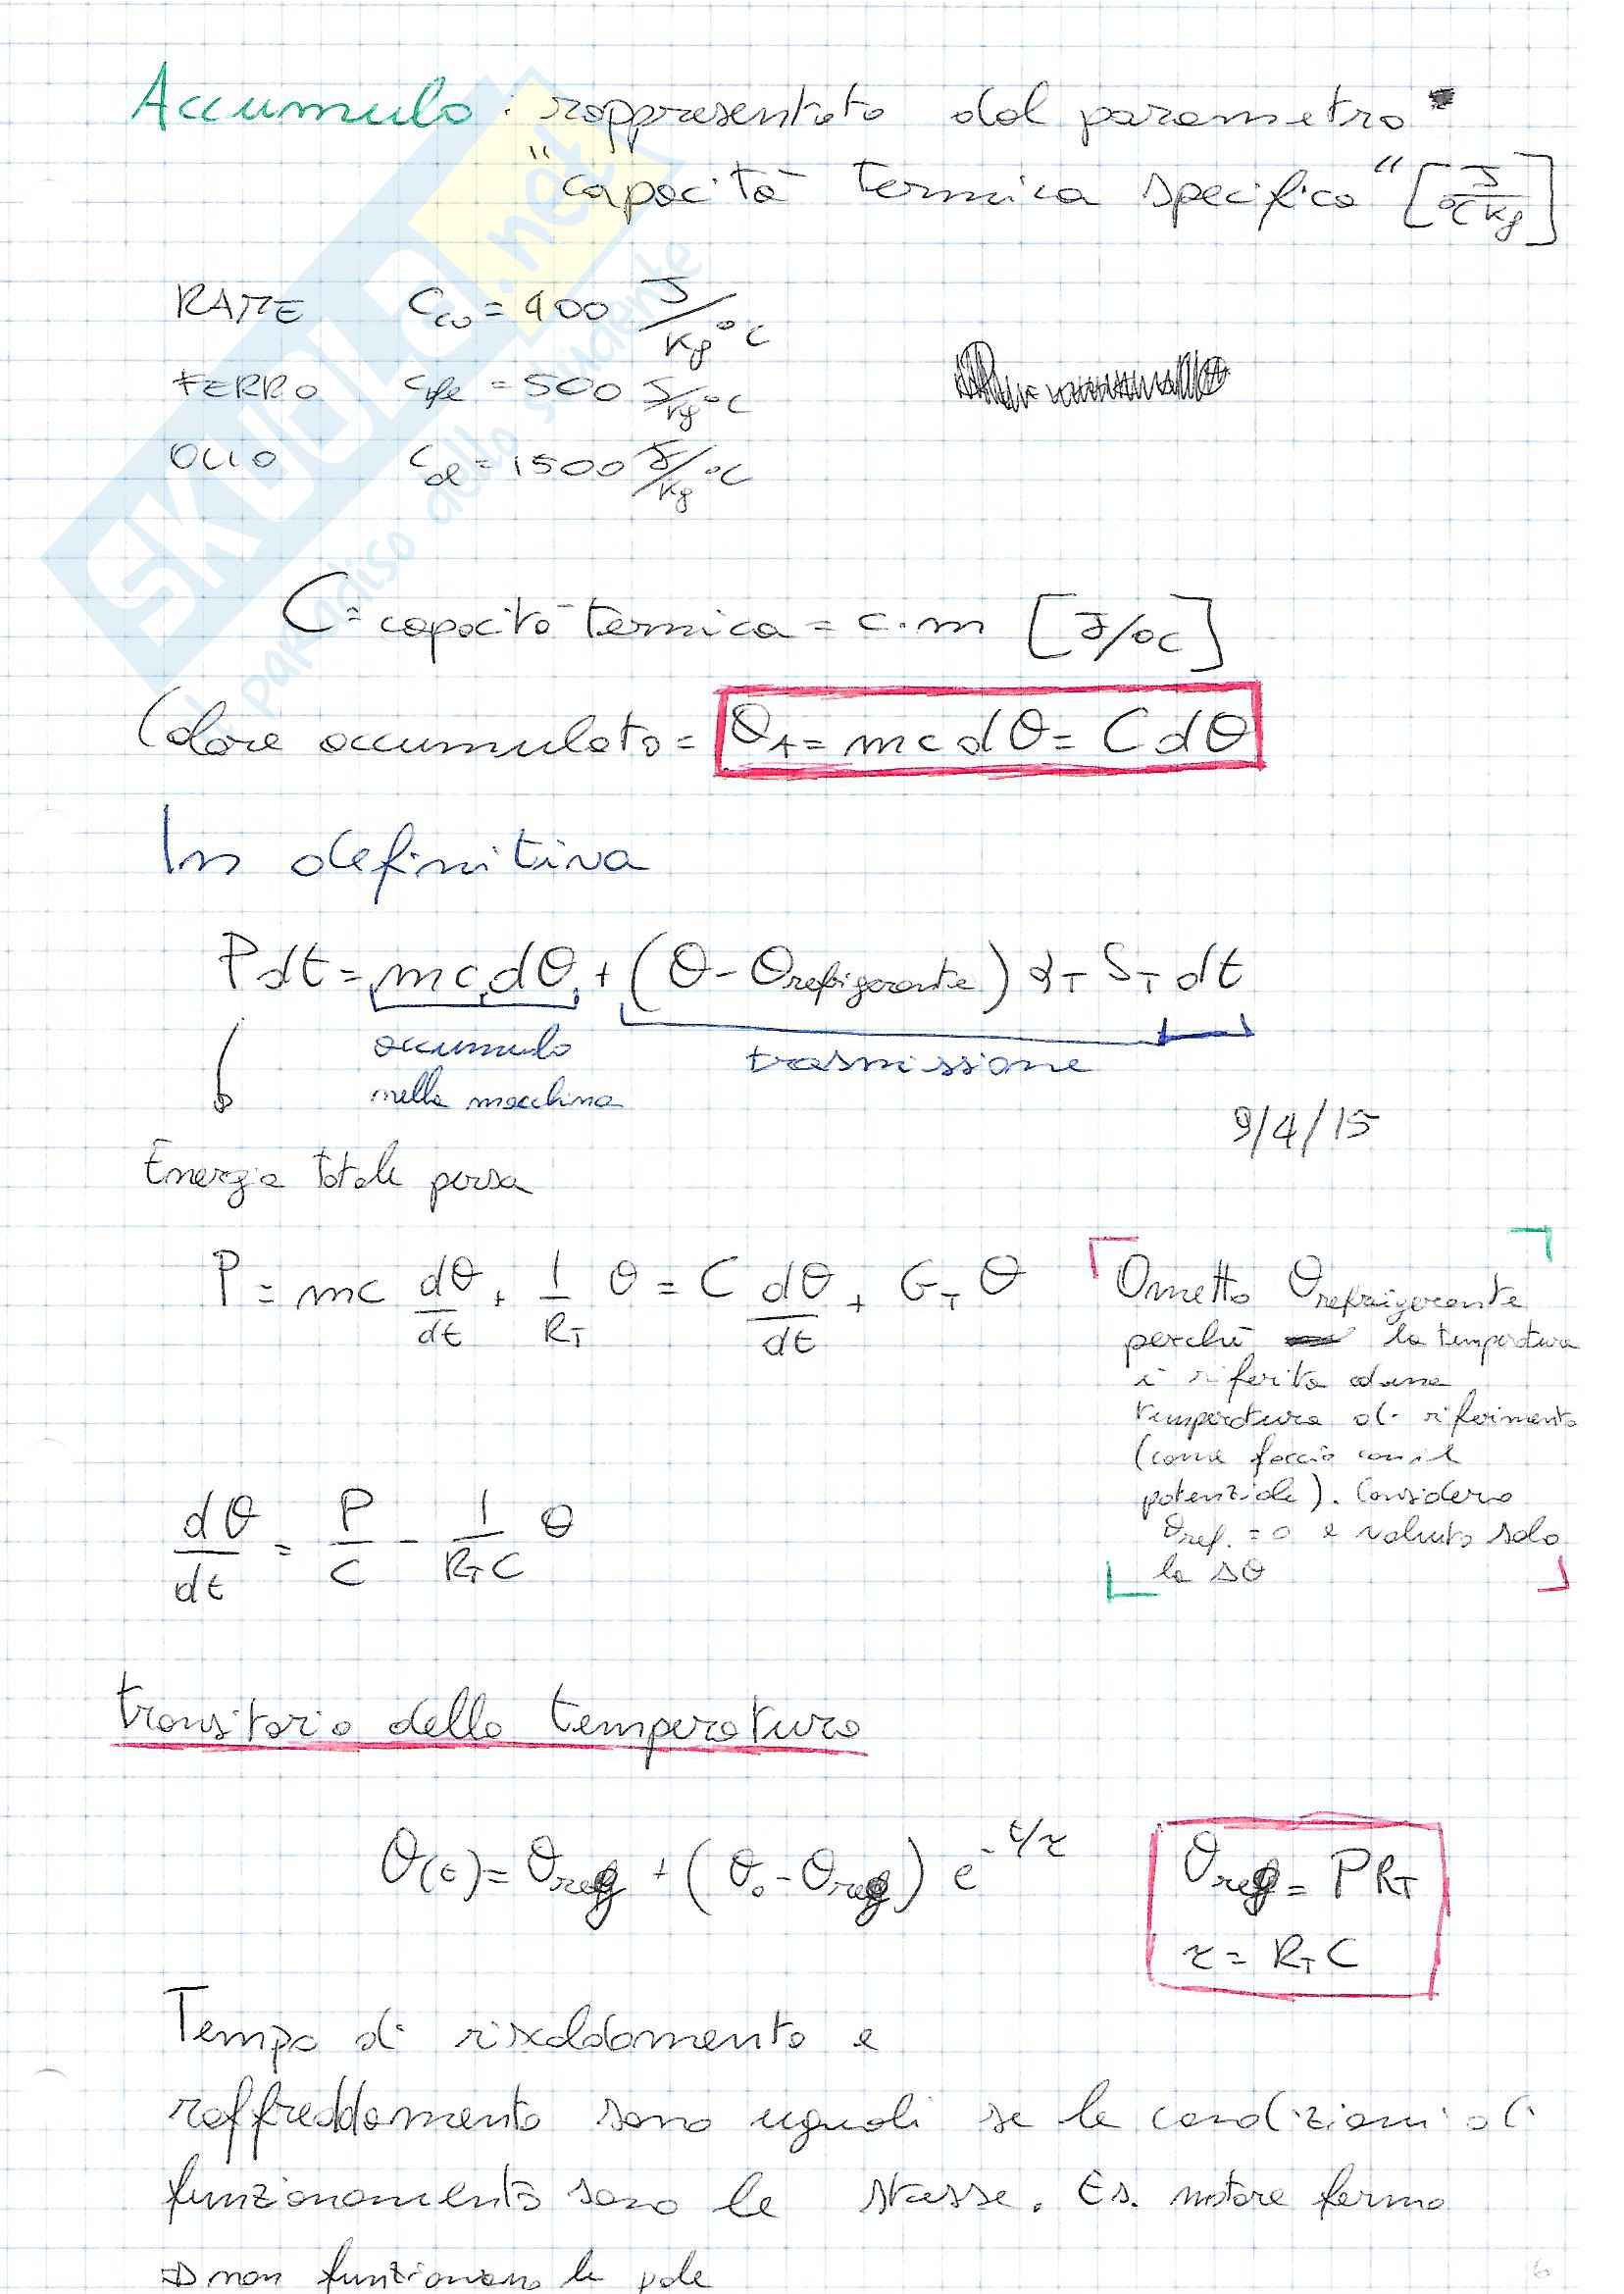 Accumulo: rappresentato dal parametro
"capacità termica specifica" [J/°C kg]
RAME Ccu = 400 J/kg °C
FERRO cfe = 500 J/kg °C
OLIO Col = 1500 J/kg °C
C = capacità termica = c·m [J/°C]
Calore accumulato = QA = mc dθ = C dθ
In definitiva
P dt = mc dθ + (θ - θrefrigerante) αT ST dt
accumulo
nella macchina
trasmissione
9/4/15
Energia totale persa
P = mc dθ/dt + 1/RT θ = C dθ/dt + GT θ
Ometto θrefrigerante
perché la temperatura
è riferita ad una
temperatura di riferimento
(come faccio con il
potenziale). Considero
θref. = 0 e valuto solo
la Δθ
dθ/dt = P/C - 1/RTC θ
transitorio della temperatura
θ(t) = θreg + (θ0 - θreg) e^-t/τ
θreg = PRT
τ = RTC
Tempo di riscaldamento e
raffreddamento sono uguali se le condizioni di
funzionamento sono le stesse. Es. motore fermo
⇒ non funzionano le pale
6
SKUOLA.net
il paradiso dello studente